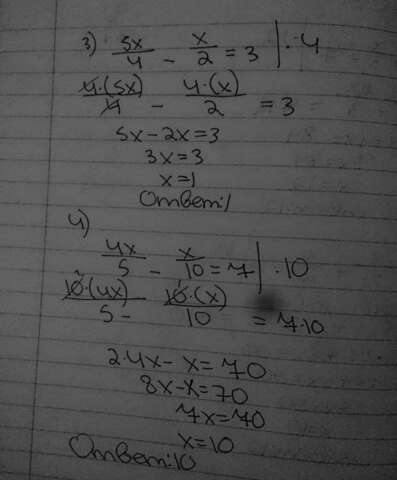 3) 5x/4 - x/2 = 3 | · 4
4·(5x)/4 - 4·(x)/2 = 3
5x - 2x = 3
3x = 3
x = 1
Ответ: 1
4)
4x/5 - x/10 = 7 | · 10
10·(4x)/5 - 10·(x)/10 = 7·10
2·4x - x = 70
8x - x = 70
7x = 70
x = 10
Ответ: 10